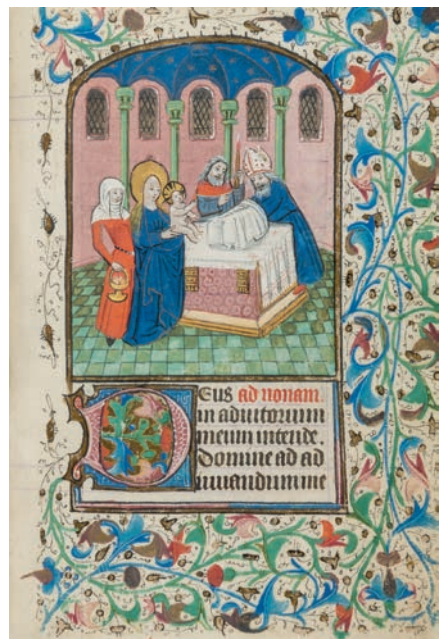 Deus ad nonam.
in adiutorium
meum intende.
Domine ad ad
iuuandum me